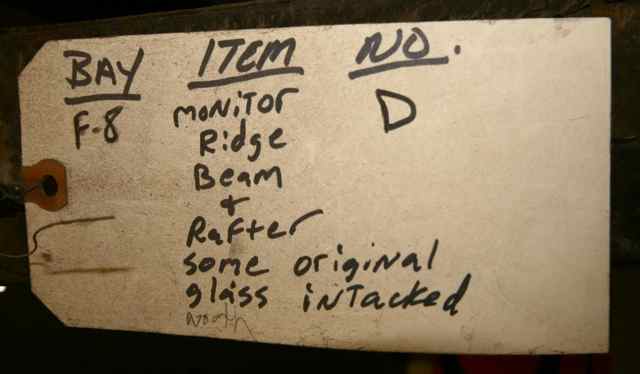 BAY ITEM NO.
F-8 MONITOR D
Ridge
Beam
+
Rafter
some original
glass intacked